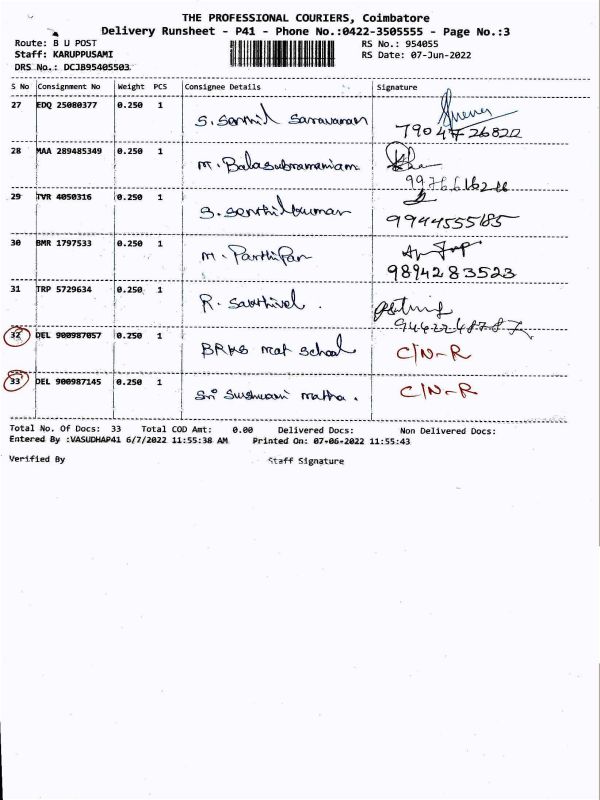 THE PROFESSIONAL COURIERS, Coimbatore
Delivery Runsheet - P41 - Phone No.:0422-3505555 - Page No.:3
Route: B U POST RS No.: 954055
Staff: KARUPPUSAMI RS Date: 07-Jun-2022
DRS No.: DCJB95405503
S No Consignment No Weight PCS Consignee Details Signature
27 EDQ 25080377 0.250 1 S. Senthil Saravanan
7904726822
28 MAA 289485349 0.250 1 M. Balasubramaniam
29 TVR 4050316 0.250 1 S. Senthilkumar
9944555185
30 BMR 1797533 0.250 1 M. Parthipan
9894283523
31 TRP 5729634 0.250 1 R. Sakthivel.
32 DEL 900987057 0.250 1 BRKS mat school C/N-R
33 DEL 900987145 0.250 1 Sri matha. C/N-R
Total No. Of Docs: 33 Total COD Amt: 0.00 Delivered Docs: Non Delivered Docs:
Entered By :VASUDHAP41 6/7/2022 11:55:38 AM Printed On: 07-06-2022 11:55:43
Verified By Staff Signature